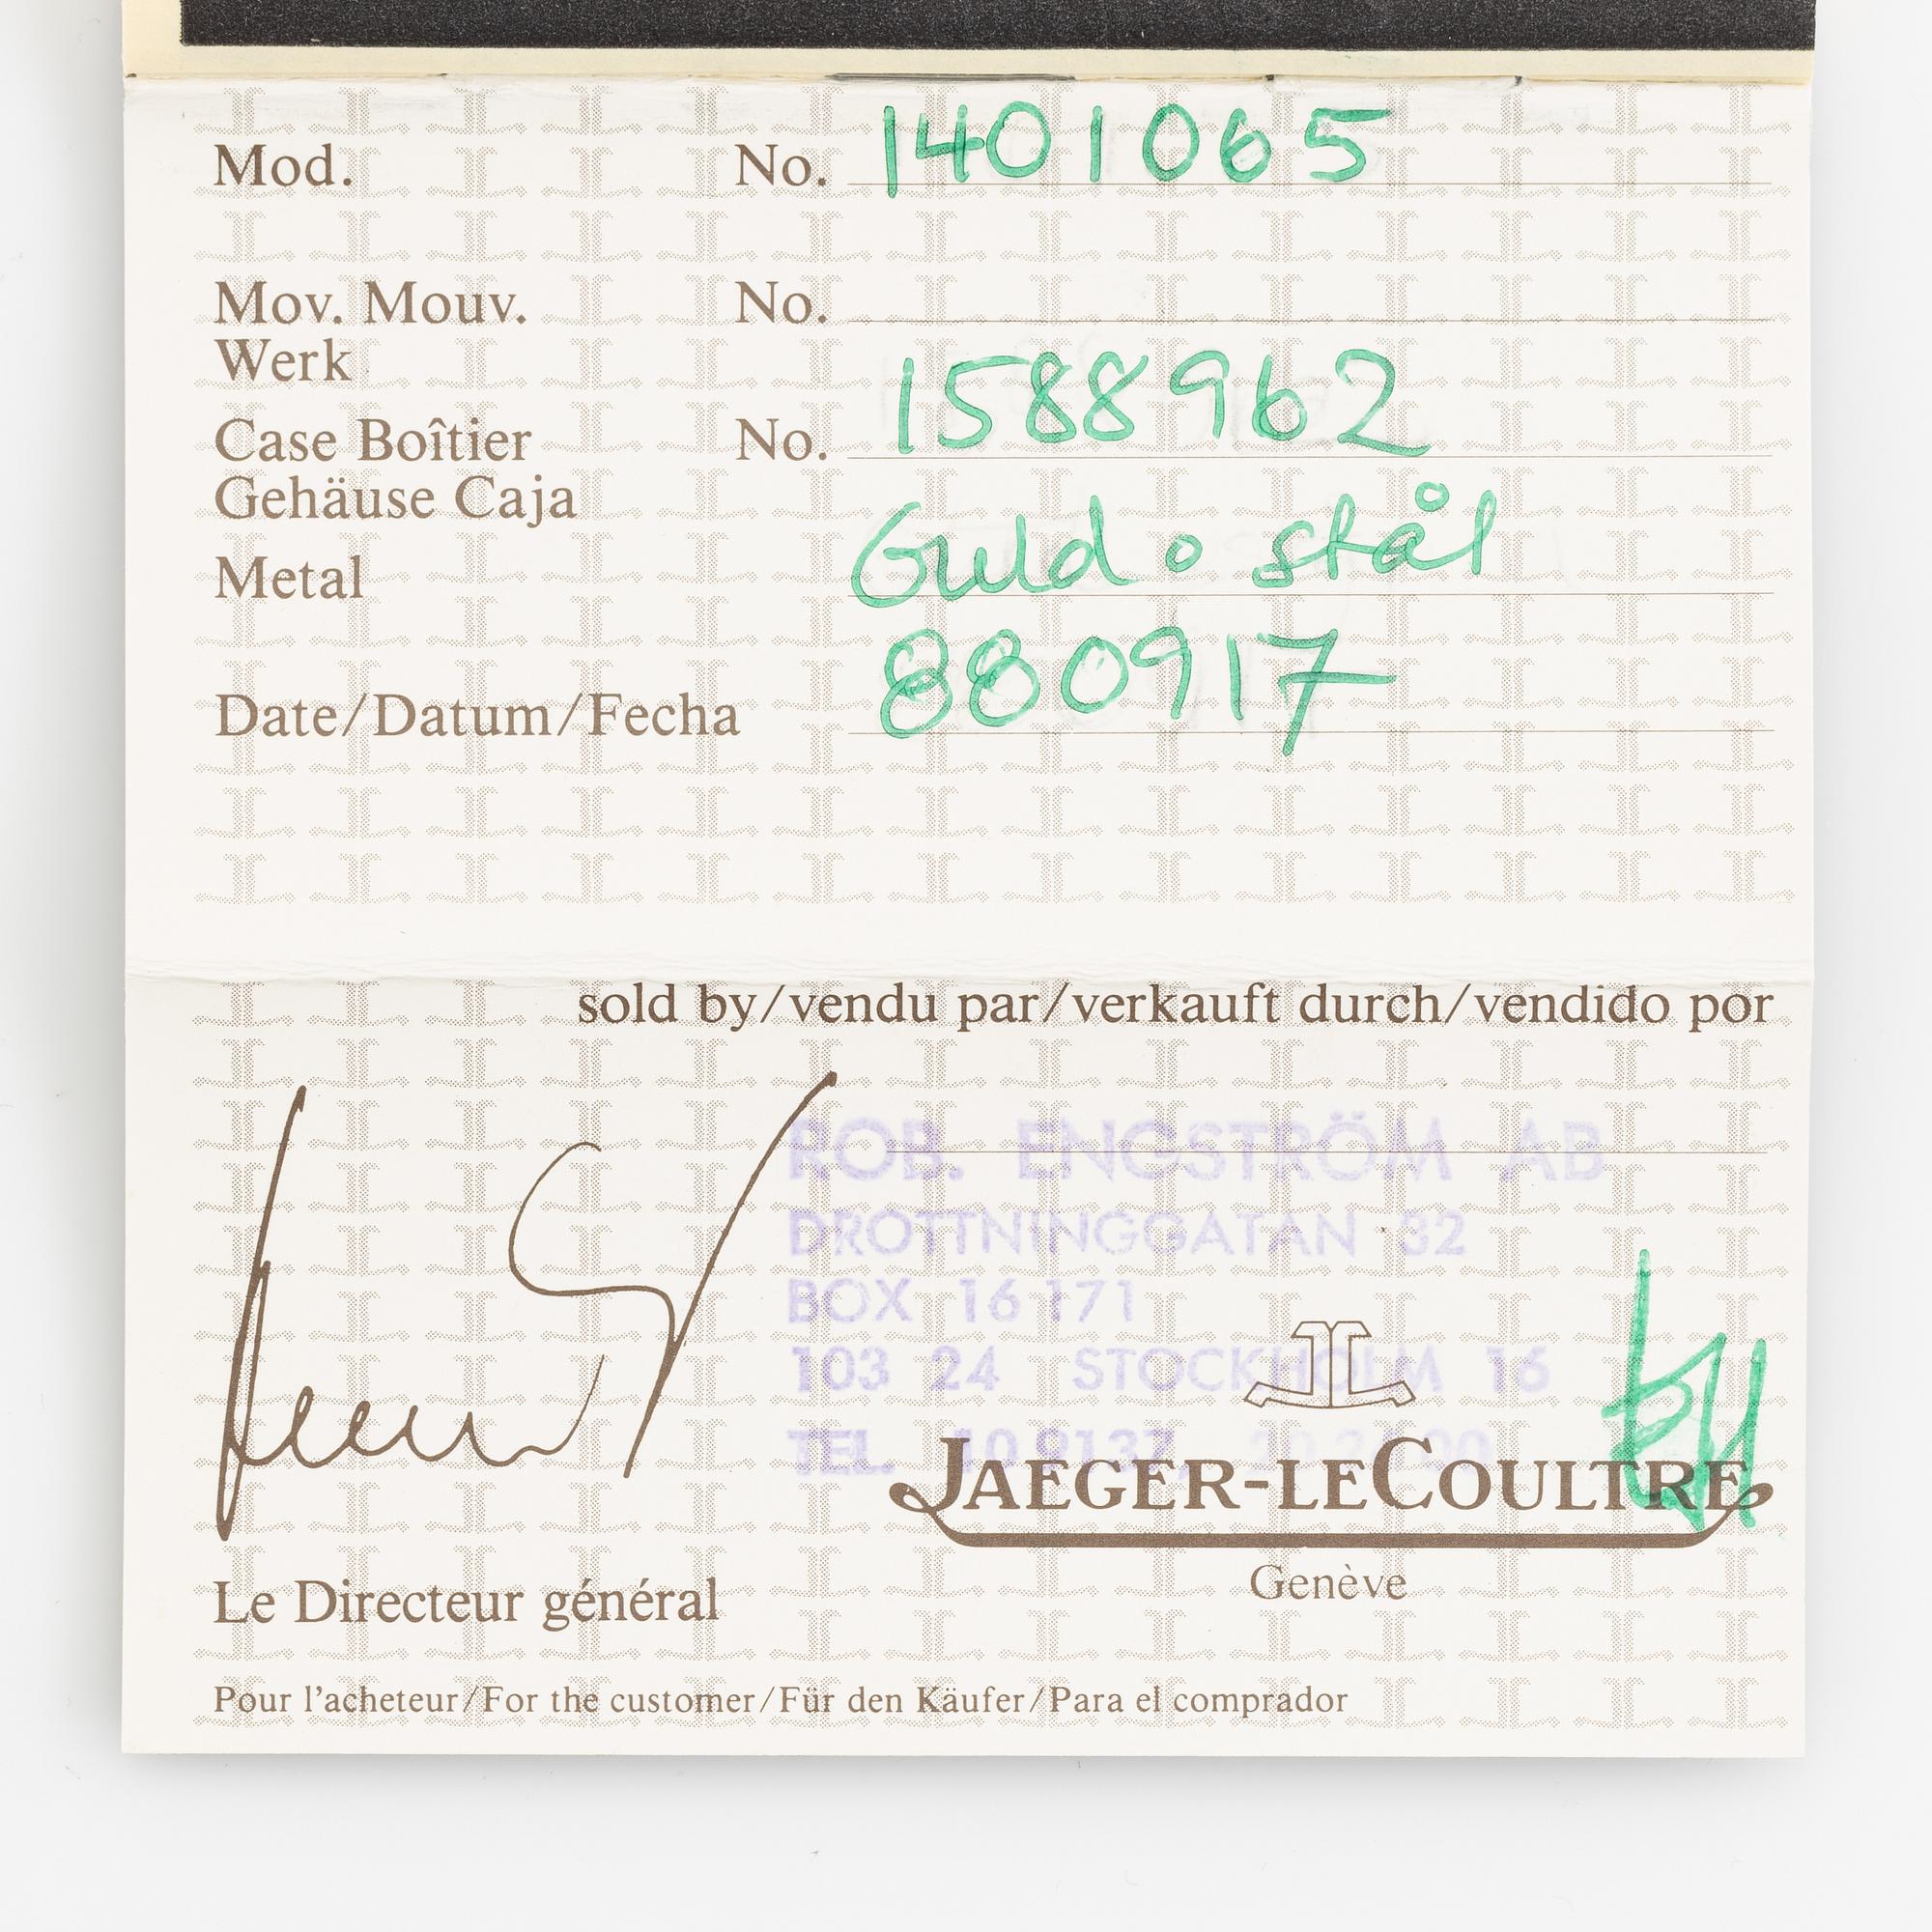 Mod. No. 1401065
Mov. Mouv. No.
Werk
Case Boîtier No. 1588962
Gehäuse Caja
Metal Guld o stål
Date/Datum/Fecha 880917
sold by/vendu par/verkauft durch/vendido por
ROB. ENGSTRÖM AB
DROTTNINGGATAN 32
BOX 16 171
103 24 STOCKHOLM 16
TEL. 10 9137,
JAEGER-LECOULTRE
Genève
Le Directeur général
Pour l'acheteur/For the customer/Für den Käufer/Para el comprador